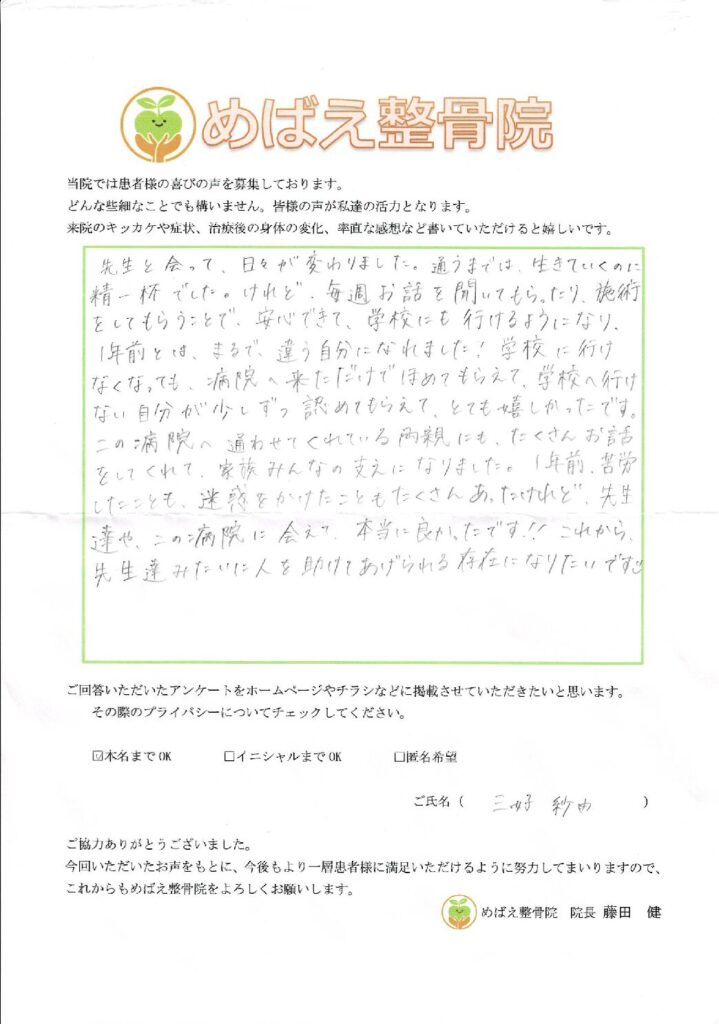 めばえ整骨院
当院では患者様の喜びの声を募集しております。
どんな些細なことでも構いません。皆様の声が私達の活力となります。
来院のキッカケや症状、治療後の身体の変化、率直な感想など書いていただけると嬉しいです。
先生と会って、日々が変わりました。通うまでは、生きていくのに
精一杯でした。けれど、毎週お話を聞いてもらったり、施術
をしてもらうことで、安心できて、学校にも行けるようになり、
1年前とは、まるで、違う自分になれました!学校に行け
なくなっても、病院へ来ただけでほめてもらえて、学校へ行け
ない自分が少しずつ認めてもらえて、とても嬉しかったです。
この病院へ通わせてくれている両親にも、たくさんお話
をしてくれて、家族みんなの支えになりました。1年前、苦労
したことも、迷惑をかけたこともたくさんあったけれど、先生
達や、この病院に会えて、本当に良かったです!!これから、
先生達みたいに人を助けてあげられる存在になりたいです
ご回答いただいたアンケートをホームページやチラシなどに掲載させていただきたいと思います。
その際のプライバシーについてチェックしてください。
☑本名までOK □イニシャルまでOK □匿名希望
ご氏名( 三好 紗由 )
ご協力ありがとうございました。
今回いただいたお声をもとに、今後もより一層患者様に満足いただけるように努力してまいりますので、
これからもめばえ整骨院をよろしくお願いします。
めばえ整骨院 院長 藤田 健